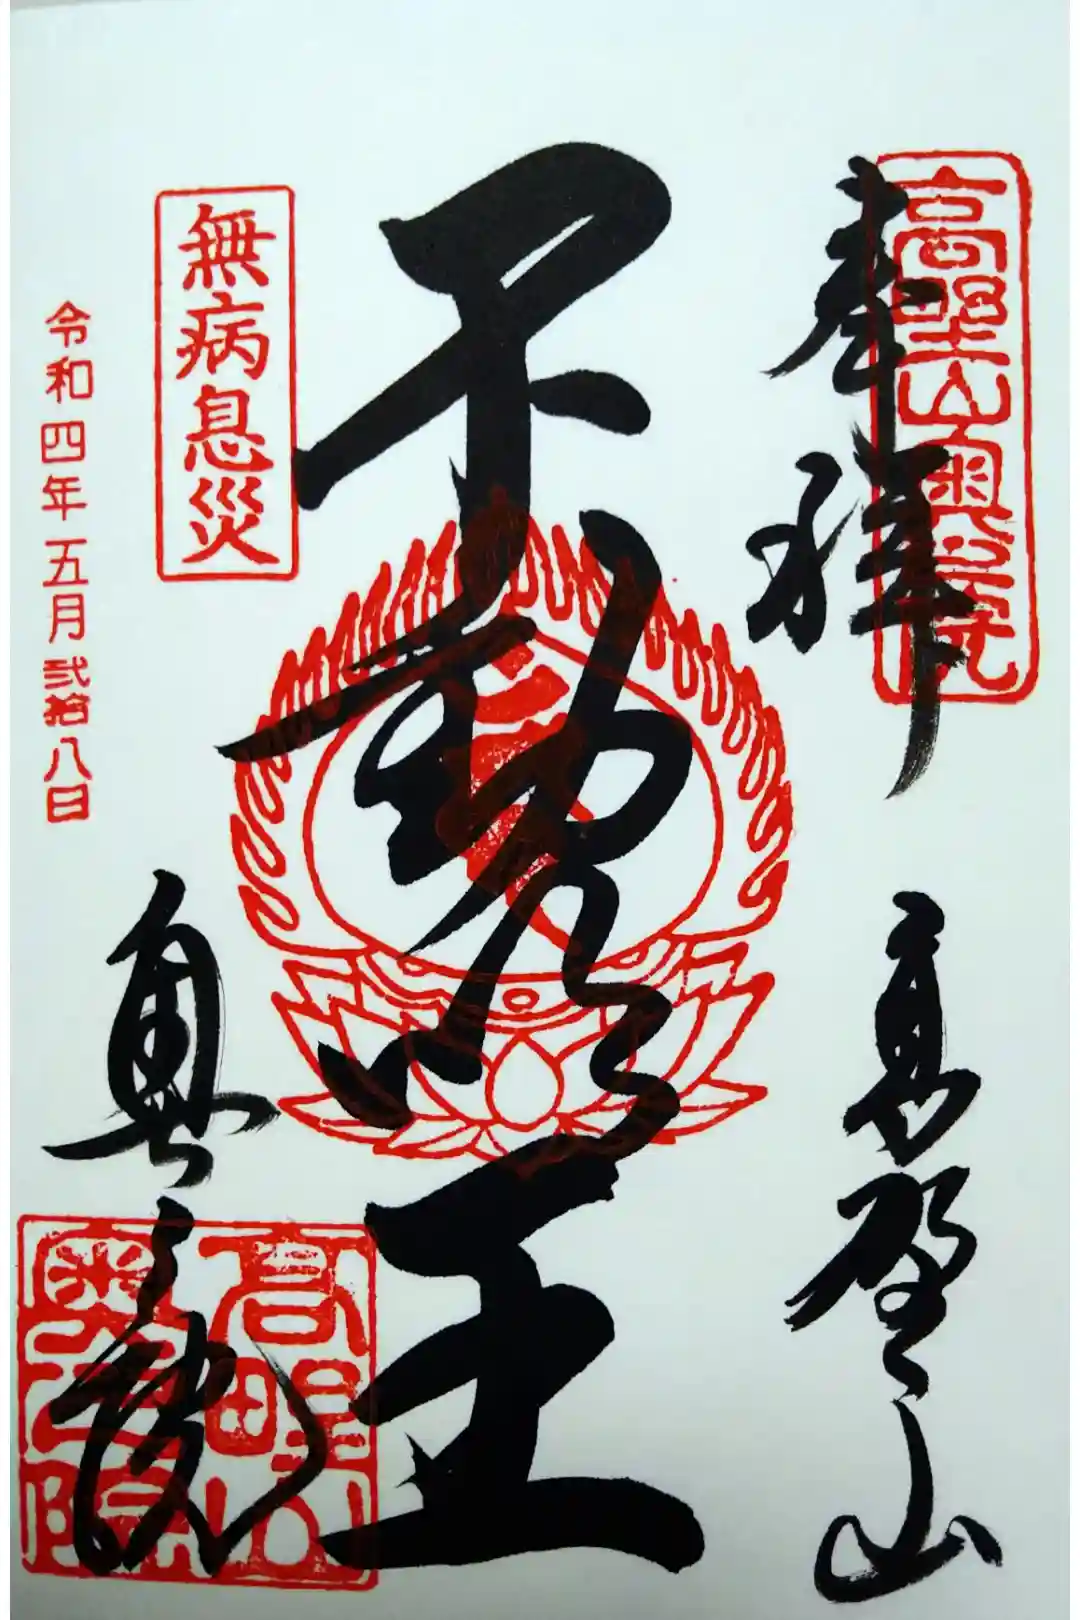 高野山奥之院
奉拝
高野山
不動明王
無病息災
令和四年五月弐拾八日
奥之院
高野山
奥之院